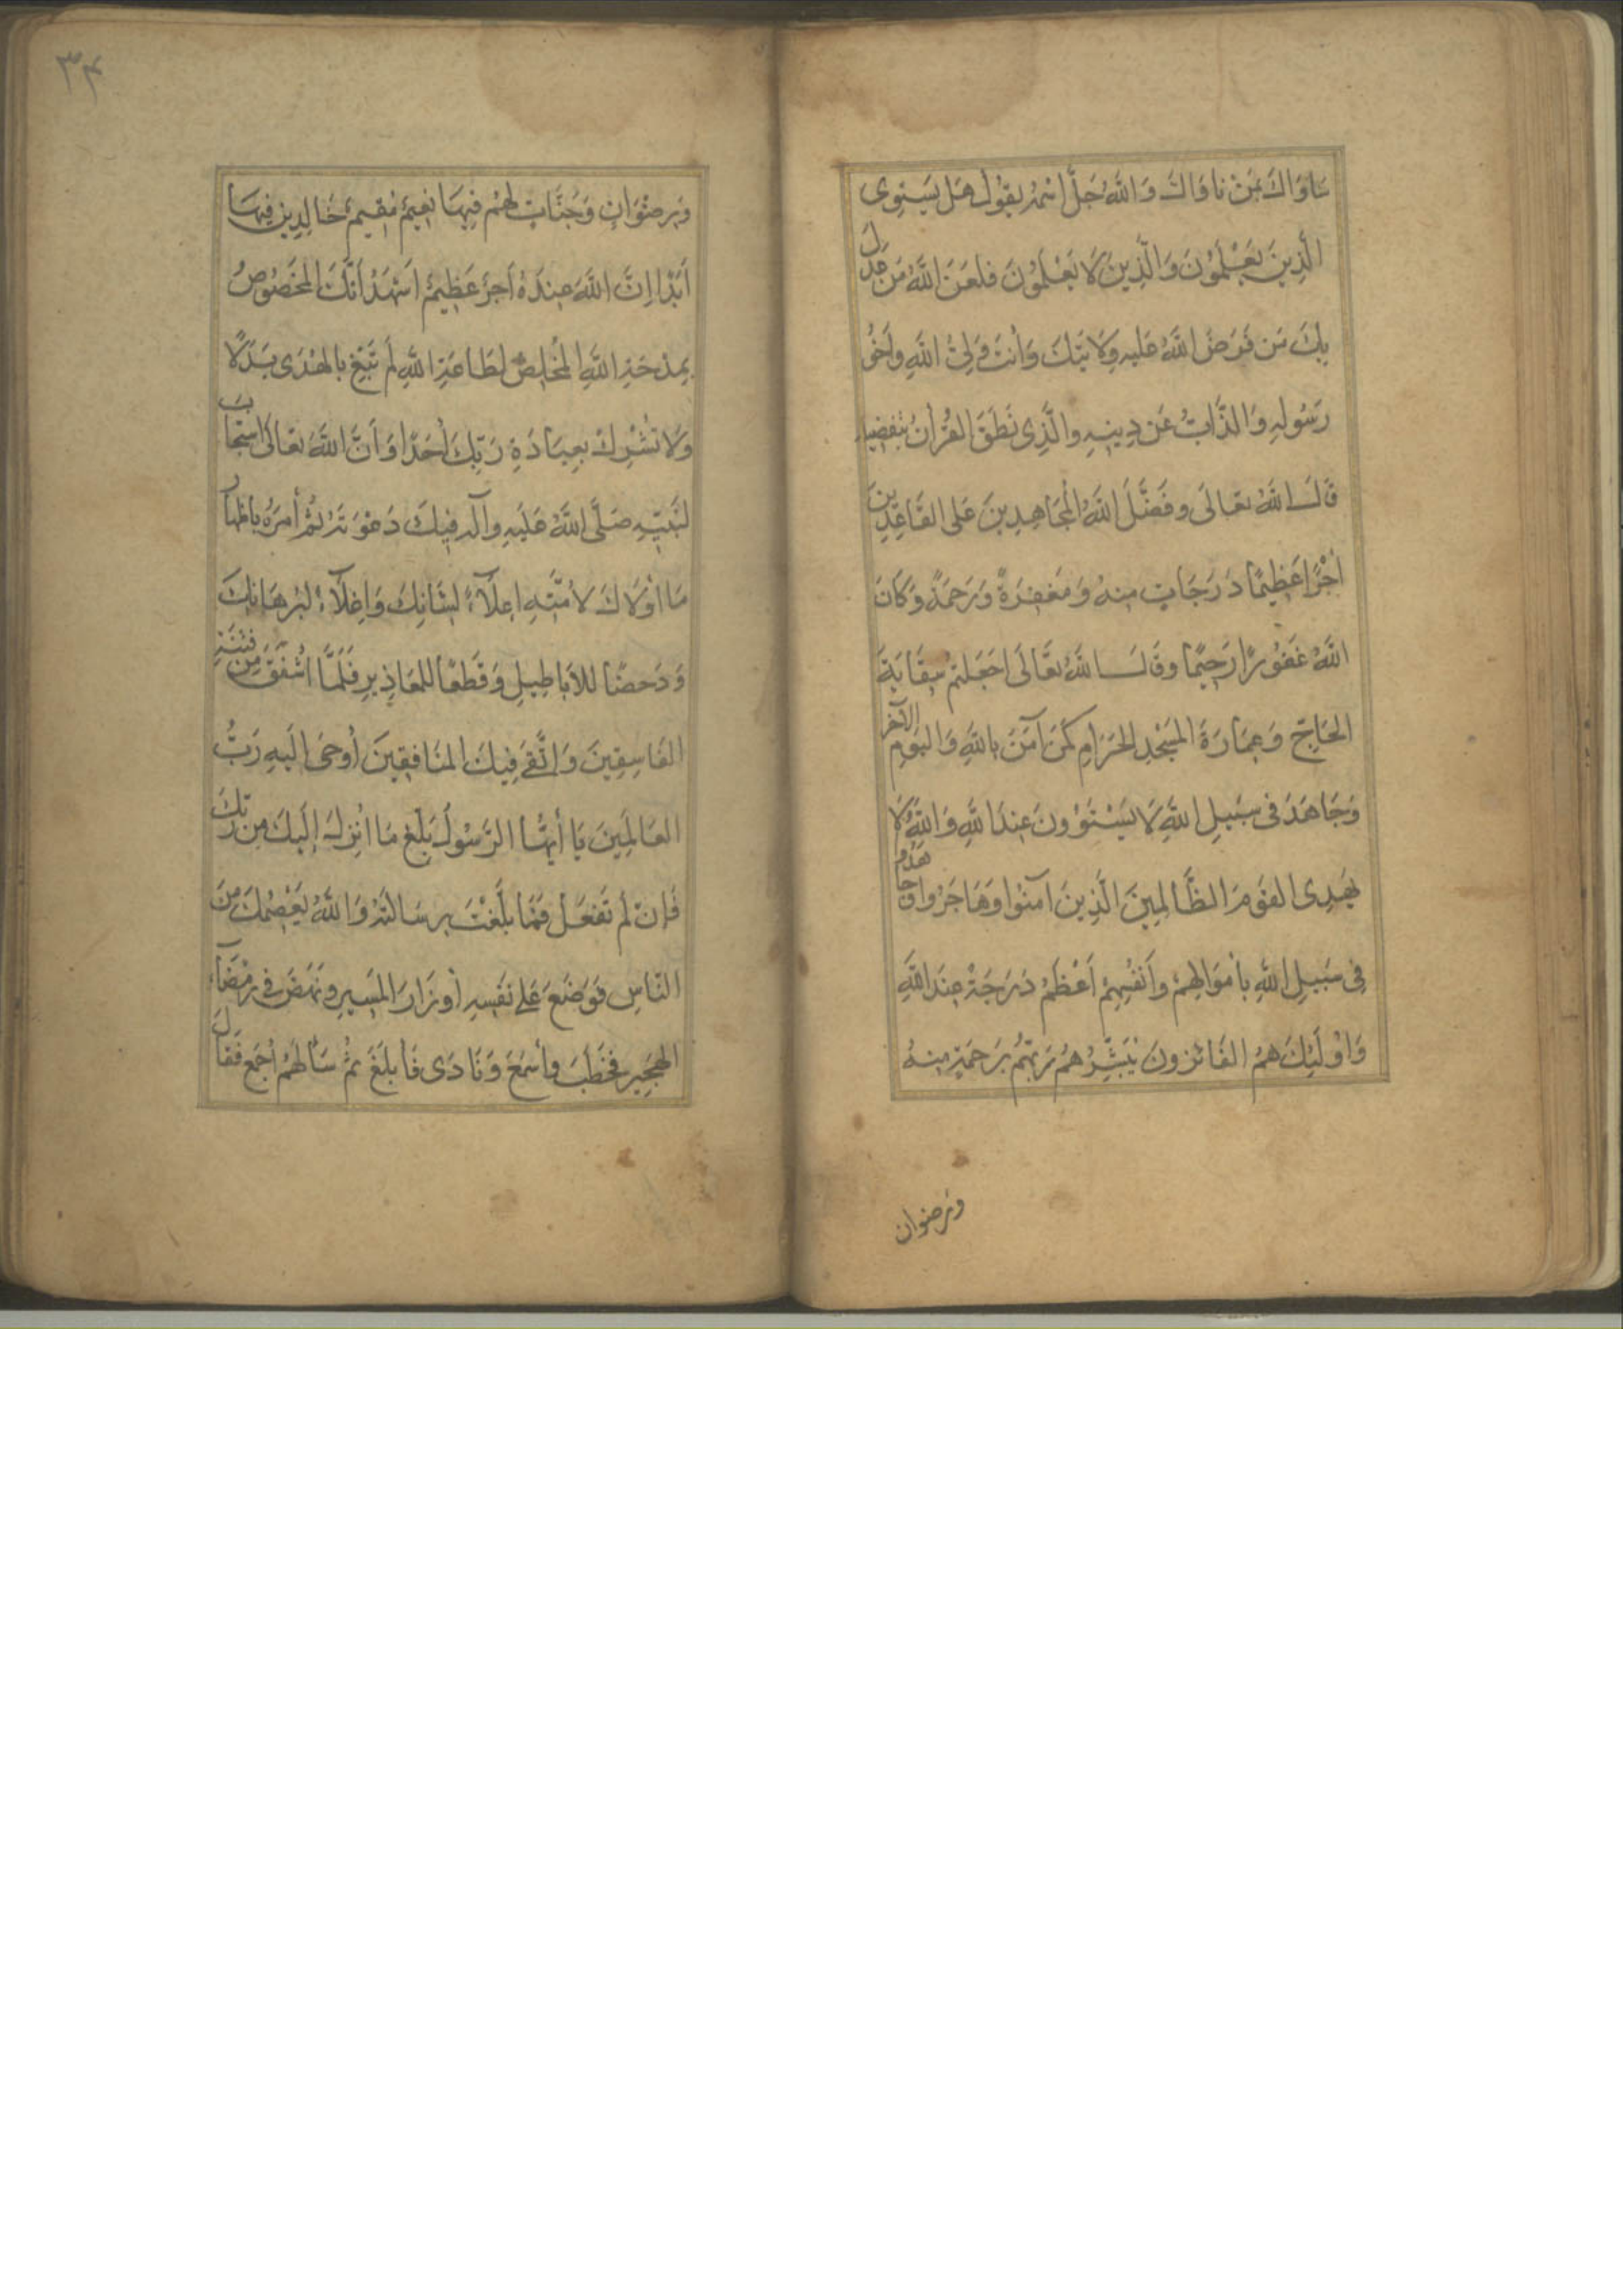 سَاوَاكَ بِمَنْ نَاوَاكَ وَاللَّهُ جَلَّ اسْمُهُ يَقُولُ هَلْ يَسْتَوِى
الَّذِينَ يَعْلَمُونَ وَالَّذِينَ لَا يَعْلَمُونَ فَلَعَنَ اللَّهُ مَنْ عَدَلَ
بِكَ مَنْ فَرَضَ اللَّهُ عَلَيْهِ وِلَايَتَكَ وَأَنْتَ وَلِيُّ اللَّهِ وَأَخُو
رَسُولِهِ وَالذَّابُّ عَنْ دِينِهِ وَالَّذِى نَطَقَ القُرْآنُ بِتَفْضِيلِهِ
قَالَ اللَّهُ تعَالَى وَفَضَّلَ اللَّهُ الْمُجَاهِدِينَ عَلَى القَاعِدِينَ
أَجْرًا عَظِيمًا دَرَجَاتٍ مِنْهُ وَمَغْفِرَةً وَرَحْمَةً وَكَانَ
اللَّهُ غَفُورًا رَحِيمًا وَقَالَ اللَّهُ تَعَالَى أَجَعَلْتُمْ سِقَايَةَ
الحَاجِّ وَعِمَارَةَ المَسْجِدِ الحَرَامِ كَمَنْ آمَنَ بِاللَّهِ وَاليَوْمِ الآخِرِ
وَجَاهَدَ فى سَبِيلِ اللَّهِ لَا يَسْتَوُونَ عِنْدَ اللَّهِ وَاللَّهُ لَا
يَهْدِى القَوْمَ الظَّالِمِينَ الَّذِينَ آمَنُوا وَهَاجَرُوا وَجَاهَدُوا
فِى سَبِيلِ اللَّهِ بِأَمْوَالِهِمْ وَأَنْفُسِهِمْ أَعْظَمُ دَرَجَةً عِنْدَ اللَّهِ
وَأُولَئِكَ هُمُ الفَائِزُونَ يُبَشِّرُهُمْ رَبُّهُمْ بِرَحْمَةٍ مِنْهُ
ورضوان
٣٤
وَرِضْوَانٍ وَجَنَّاتٍ لَهُمْ فِيهَا نَعِيمٌ مُقِيمٌ خَالِدِينَ فِيهَا
أَبَدًا إِنَّ اللَّهَ عِنْدَهُ أَجْرٌ عَظِيمٌ أَشْهَدُ أَنَّكَ الْمَخْصُوصُ
بِمِدْحَةِ اللَّهِ الْمُخْلِصُ لِطَاعَةِ اللَّهِ لَمْ تَبْغِ بِالْهُدَى بَدَلًا
وَلَا تُشْرِكْ بِعِبَادَةِ رَبِّكَ أَحَدًا وَأَنَّ اللَّهَ تعَالَى اسْتَجَابَ
لِنَبِيِّهِ صَلَّى اللَّهُ عَلَيْهِ وآلِهِ فِيكَ دَعْوَتَهُ ثُمَّ أَمَرَهُ بِإِظْهَارِ
مَا أَوْلَاكَ لِأُمَّتِهِ إِعْلَآءً لِشَانِكَ وَإِعْلَآءً لِبُرْهَانِكَ
وَدَحْضًا لِلأَبَاطِيلِ وَقَطْعًا لِلمَعَاذِيرِ فَلَمَّا أَشْفَقَ مِنْ فِتْنَةِ
الفَاسِقِينَ وَاتَّقَى فِيكَ المُنَافِقِينَ أَوْحَى إِلَيْهِ رَبُّ
العَالَمِينَ يَا أَيُّهَا الرَّسُولُ بَلِّغْ مَا أُنْزِلَ إِلَيْكَ مِنْ رَبِّكَ
فَإِنْ لَمْ تَفْعَلْ فَمَا بَلَّغْتَ بِرِسَالَتَهُ وَاللَّهُ يَعْصِمُكَ مِنَ
النَّاسِ فَوَضَعَ عَلَى نَفْسِهِ أَوْزَارَ المَسِيرِ وَنَهَضَ فى رَمْضَآءِ
الهَجِيرِ فَخَطَبَ وَأَسْمَعَ وَنَادَى فَأَبْلَغَ ثُمَّ سَأَلَهُمْ أَجْمَعَ فَقَالَ